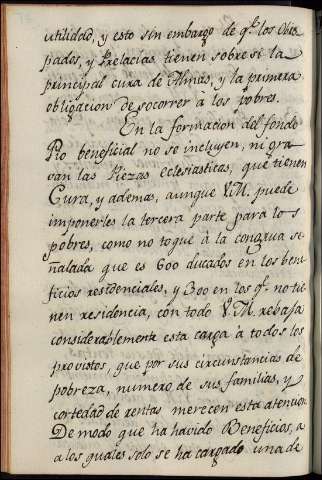 utilidad, y esto sin embargo de qe. los Obis
pados, y Prelacias tienen sobre si la
principal cura de Almas, y la primera
obligacion de socorrer à los pobres.
En la formacion del fondo
Pio beneficial no se incluyen, ni gra
van las Piezas eclesiasticas, que tienen
Cura, y ademas, aunque V.M. puede
imponerles la tercera parte para los
pobres, como no toque à la congrua se
ñalada que es 600 ducados en los bene
ficios residenciales, y 300 en los qe. no tie
nen residencia, con todo V.M. rebaja
considerablemente esta carga à todos los
provistos, que por sus circunstancias de
pobreza, numero de sus familias, y
cortedad de rentas merecen esta atencion
De modo que ha havido Beneficios, a
a los quales solo se ha cargado una de